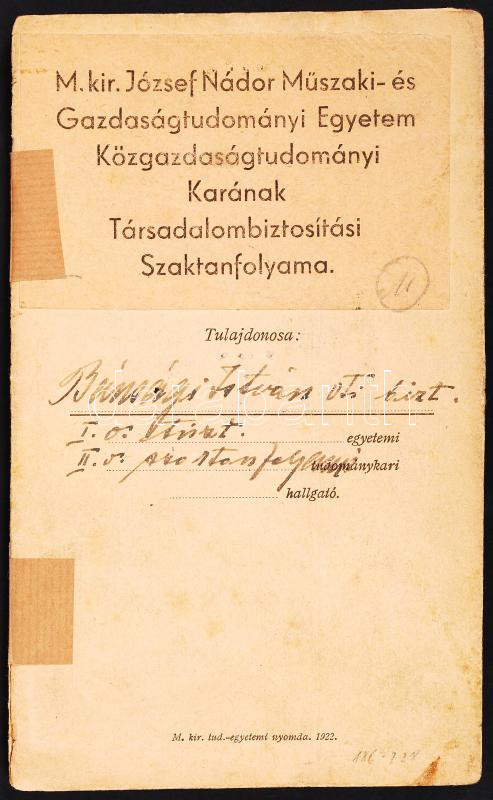 M. kir. József Nádor Műszaki- és
Gazdaságtudományi Egyetem
Közgazdaságtudományi
Karának
Társadalombiztosítási
Szaktanfolyama.
11
Tulajdonosa:
Bánsági István
I. o.
egyetemi
II. o. szaktanfolyami
tudománykari
hallgató.
darabanth
M. kir. tud.-egyetemi nyomda. 1922.